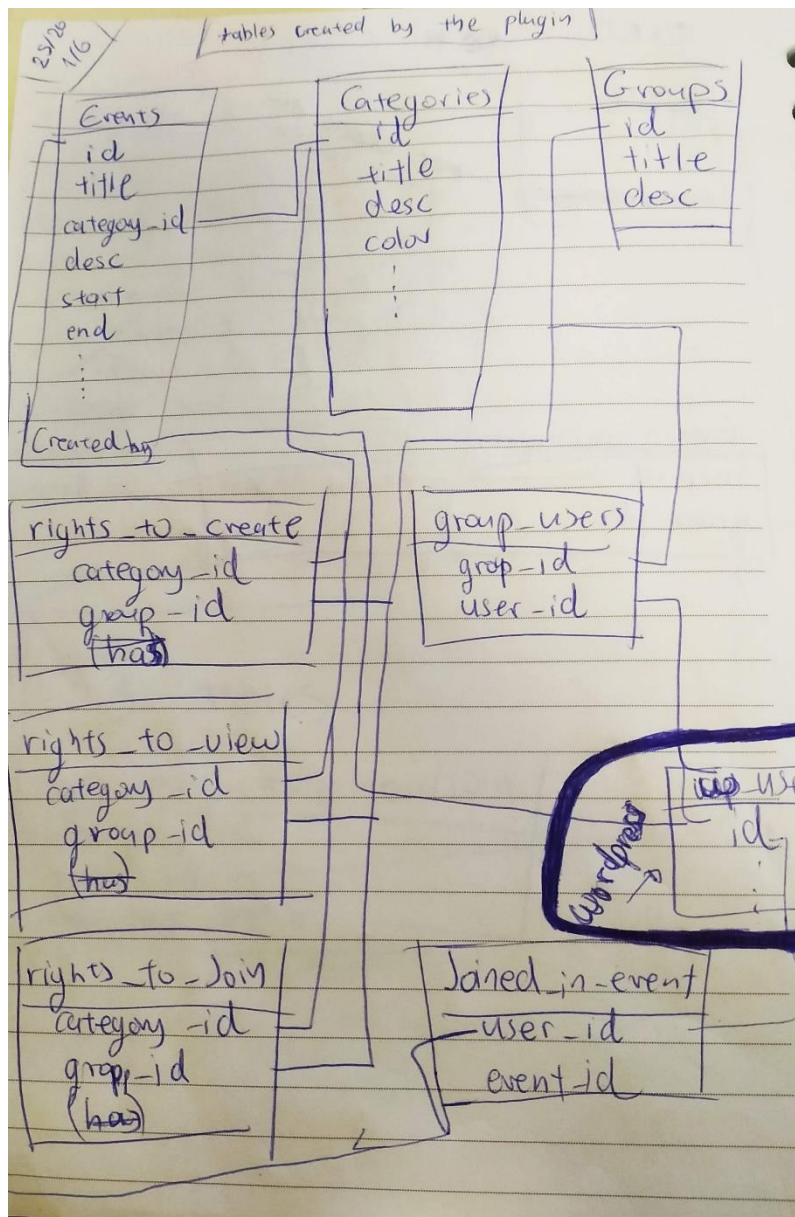 25/26
1/6
tables created by the plugin
Events
id
title
category_id
desc
start
end
Created by
Categories
id
title
desc
color
Groups
id
title
desc
rights_to_create
category_id
group_id
(has)
group_users
grop_id
user_id
rights_to_view
category_id
group_id
(has)
wordpress
wp_use
id
rights_to_Join
category_id
group_id
(has)
Joined_in_event
user_id
event_id